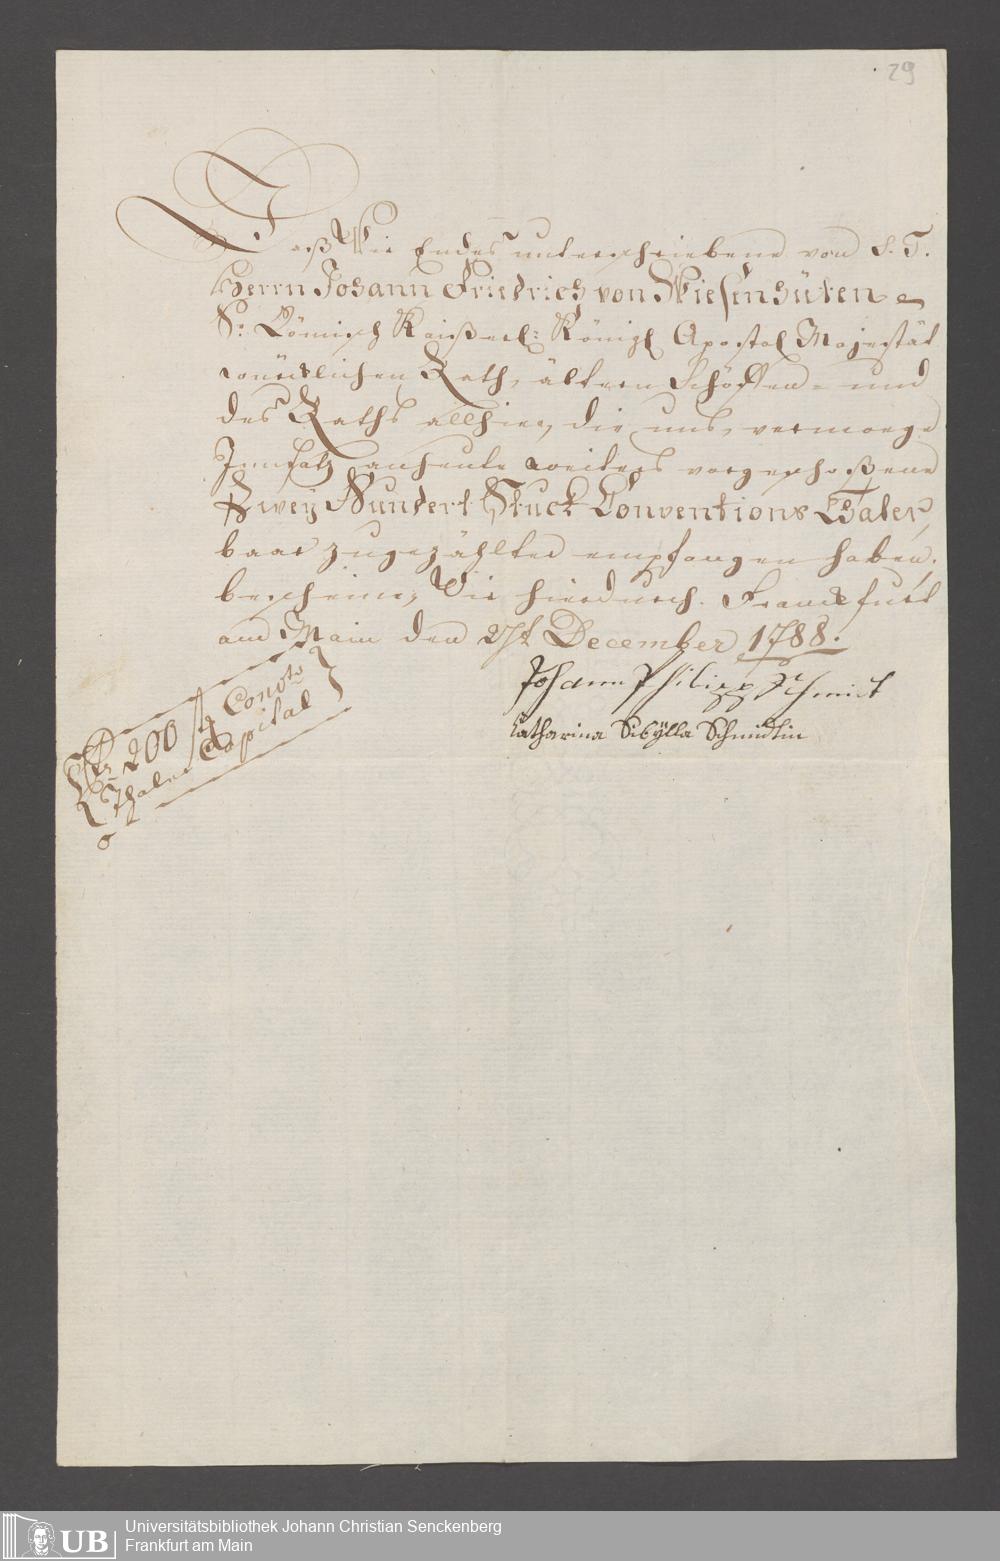 29
Daß Wir Endes unterschriebene von S. T.
Herrn Johann Friedrich von Wiesenhüten
Sr. Römisch Kaißerl: Königl Apostol Majestät
würcklichen Rath, ältern Schöffen- und
des Raths allhier, die uns, vermoege
Innsatz anheute weiters vorgeschoßene
Zwey Hundert Stuck Conventions Thaler,
baar zugezählter empfangen haben,
bescheinen, Wir hierdurch. Franckfurt
am Main den 27t December 1788.
Johann Philipp Schmidt
Catharina Sibÿlla Schmidtin
200 Convts
Thaler Capital
UB
Universitätsbibliothek Johann Christian Senckenberg
Frankfurt am Main